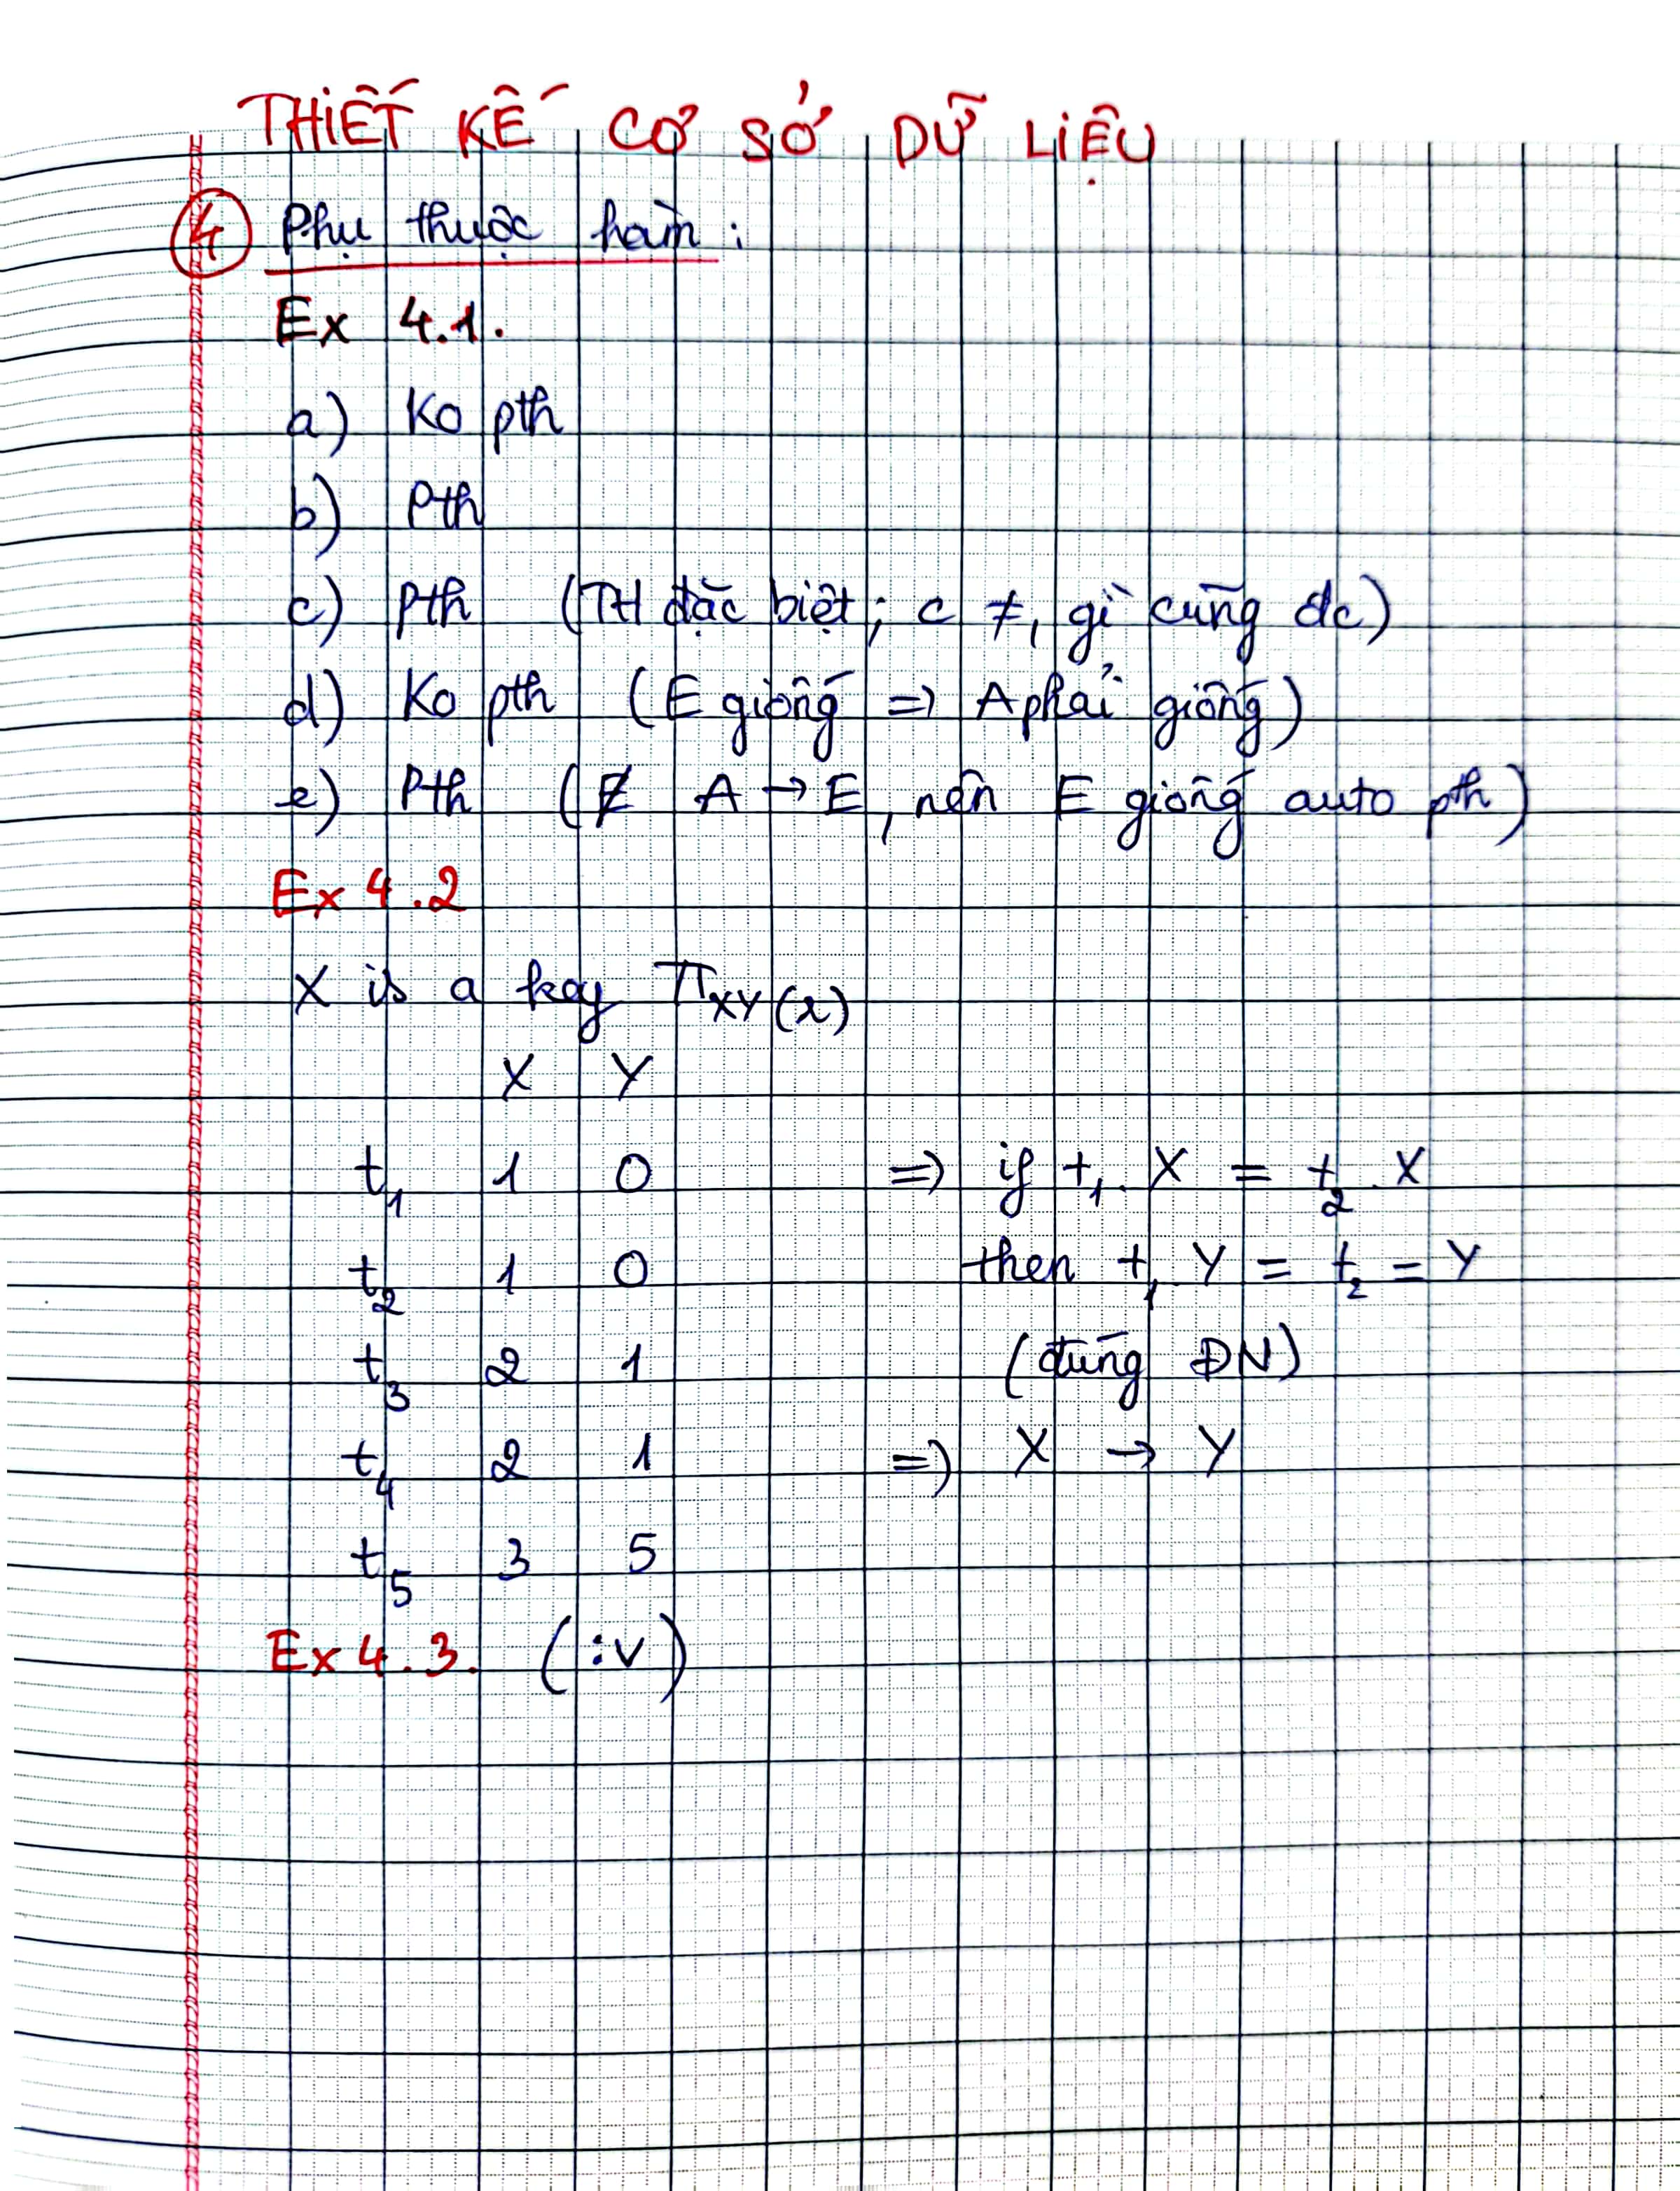 THIẾT KẾ CƠ SỞ DỮ LIỆU
4 Phụ thuộc hàm :
Ex 4.1.
a) Ko pth
b) Pth
c) Pth (TH đặc biệt ; C ≠, gì cũng đc)
d) Ko pth (E giống => A phải giống)
e) Pth ( A → E, nên E giống auto pth)
Ex 4.2
X is a key π XY (r)
X Y
t1 1 0 => if t1. X = t2. X
t2 1 0 then t1. Y = t2 = Y
t3 2 1 (đúng ĐN)
t4 2 1 => X → Y
t5 3 5
Ex 4.3. (:v)